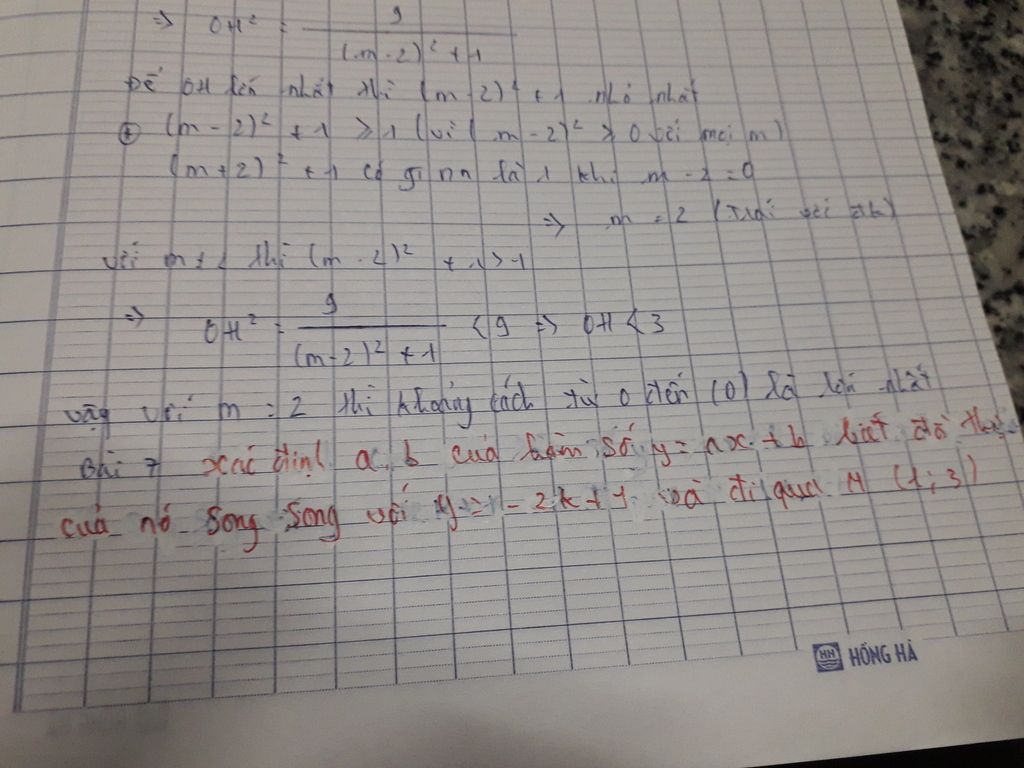 => OH² = 9 / (m-2)² + 1
Để OH lớn nhất thì (m-2)² + 1 nhỏ nhất
⊕ (m-2)² + 1 ≥ 1 (vì (m-2)² ≥ 0 với mọi m)
(m+2)² + 1 có là 1 khi m - 2 = 0
=> m = 2 (trái với đk)
với m ≠ thì (m-2)² + 1 > 1
=> OH² = 9 / (m-2)² + 1 < 9 => OH < 3
vậy với m = 2 thì khoảng cách từ O đến (D) là lớn nhất
Bài 7 xác định a, b của hàm số y = ax + b biết đồ thị
của nó song song với y = -2x + 1 và đi qua M (1; 3)
HH HỒNG HÀ